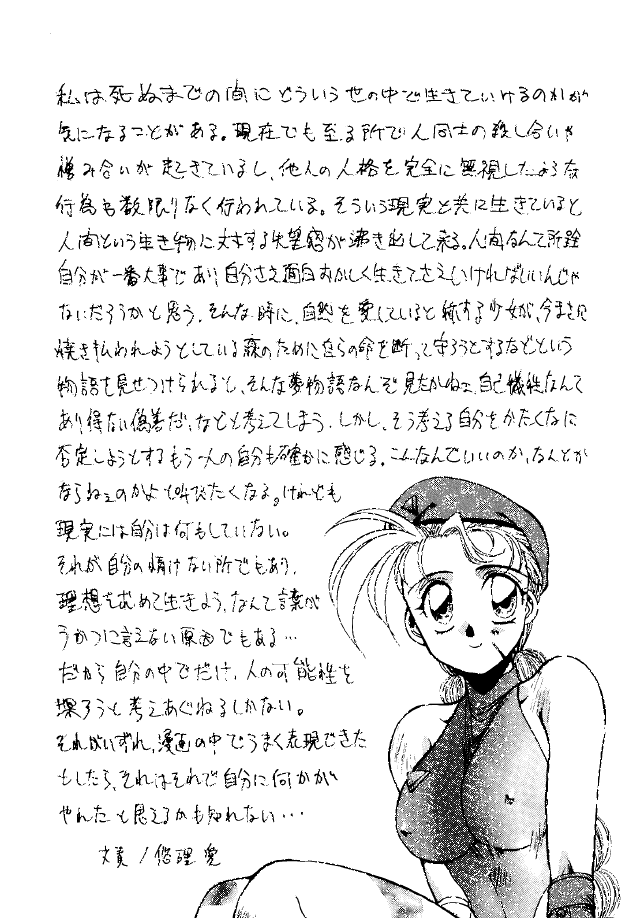 私は死ぬまでの間にどういう世の中で生きていけるのかが
気になることがある。現在でも至る所で人間同士の殺し合いや
憎み合いが起きているし、他人の人格を完全に無視したような
行為も数限りなく行われている。そういう現実と共に生きていると
人間という生き物に対する失望感が沸き出して来る。人間なんて所詮
自分が一番大事であり自分さえ面白おかしく生きてさえいければいいんじゃ
ないだろうかと思う。そんな時に、自然を愛していると称する少女が、今まさに
焼き払われようとしている森のために自らの命を断って守ろうとするなどという
物語を見せつけられると、そんな夢物語なんぞ見たかねェ、自己犠牲なんて
あり得ない偽善だ、などと考えてしまう。しかし、そう考える自分をかたくなに
否定しようとするもう一人の自分も確かに感じる。こんなんでいいのか、なんとか
ならねェのかよと叫びたくなる。けれども
現実には自分は何もしていない。
それが自分の情けない所でもあり、
理想を求めて生きよう、なんて言葉が
うかつに言えない原因でもある…
だから自分の中でだけ、人の可能性を
探ろうと考えあぐねるしかない。
それがいずれ、漫画の中でうまく表現できた
としたら、それはそれで自分に何かが
やれたと思えるかも知れない…
文責/悠理愛